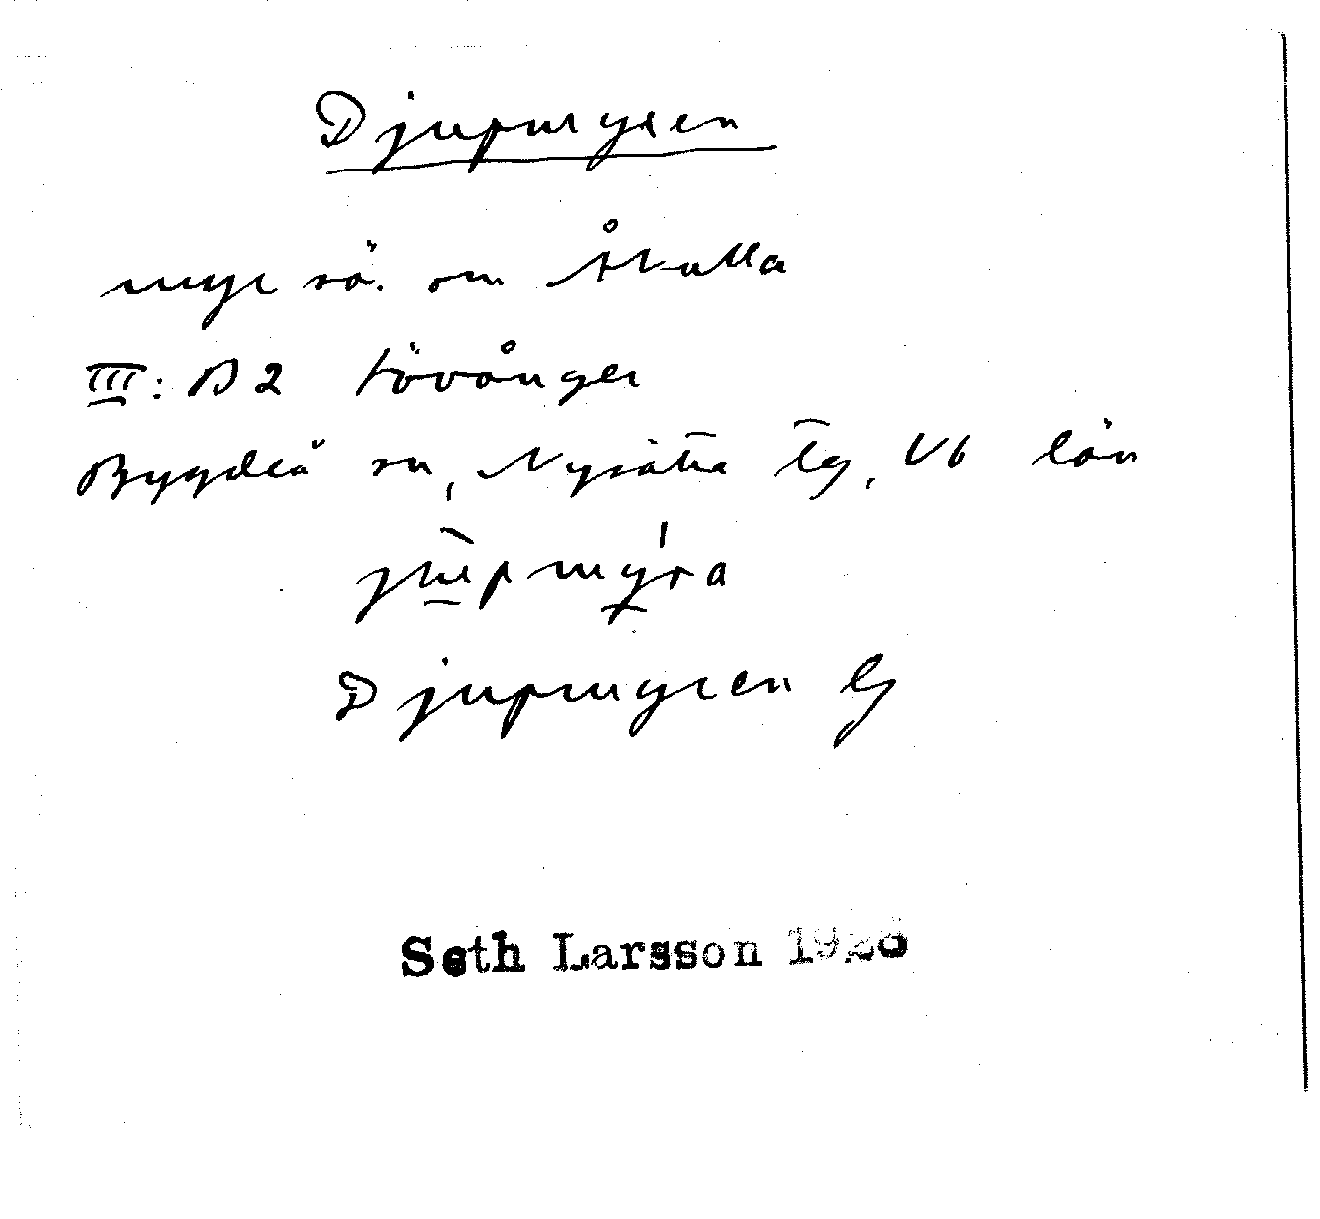 Djupmyren
myr sö. om Åkulla
III: B2 Lövånger
Bygdeå sn, Nysätra tg, Vb län
jʉ̀pmýra
Djupmyren Ek
Seth Larsson 1928